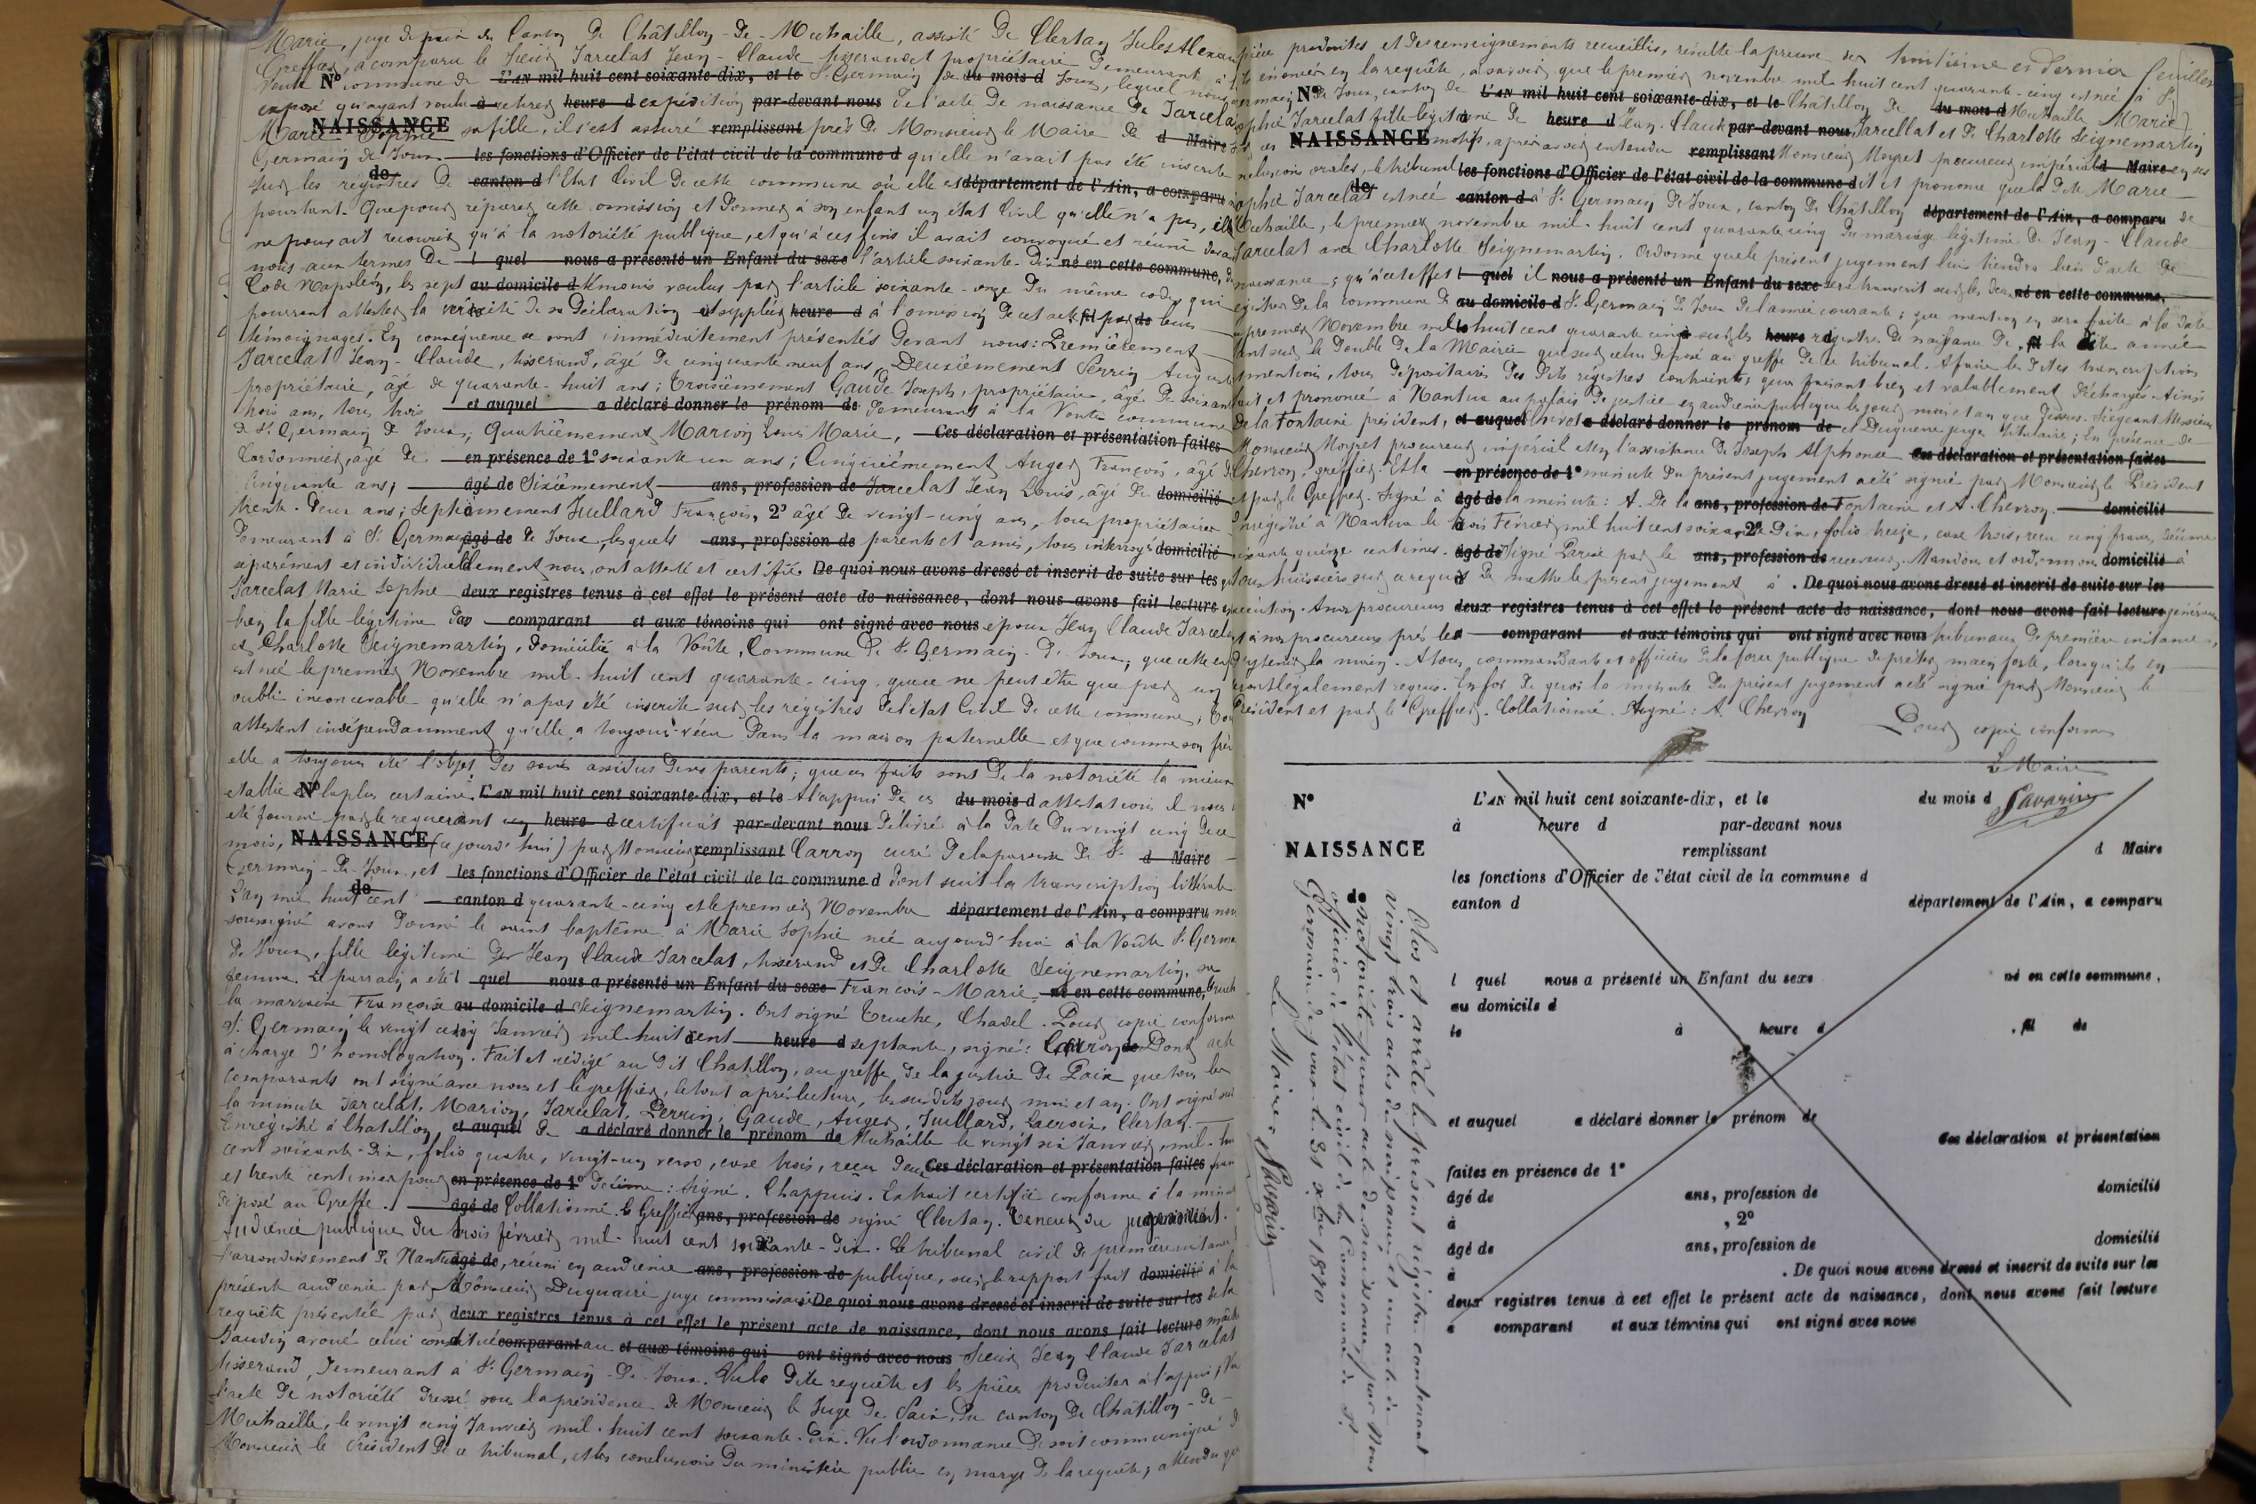 Marie, juge de paix du Canton de Châtillon-de-Michaille, assisté de Clertan Jules Alexan
Greffier, a comparu le Sieur Jarcelat Jean-Claude tisserand et propriétaire demeurant à
Voute N° commune de L'AN mil huit cent soixante-dix, et le St Germain de du mois d Joux, lequel nous
exposé qu'ayant voulu à retirer heure d expédition par-devant nous de l'acte de naissance de Jarcela
Marie NAISSANCE Sophie sa fille, il s'est assuré remplissant près de Monsieur le Maire de d Maire
Germain de Joux les fonctions d'Officier de l'état civil de la commune d qu'elle n'avait pas été inscrite
sur les régistres de de canton d l'Etat Civil de cette commune où elle est département de l'Ain, a comparu
pourtant. Que pour réparer cette omission et donner à son enfant un état Civil qu'elle n'a pas, elle
ne pouvait recourir qu'à la notoriété publique, et qu'à ces fins il avait convoqué et réuni devant
nous aux termes de l quel nous a présenté un Enfant du sexe l'article soixante-dix né en cette commune,
Code Napoléon, les sept au domicile d témoins voulus par l'article soixante-onze du même code, qui
pourront attester la véracité de sa déclaration et suppléer heure d à l'omission de cet acte fil par de leurs
témoignages. En conséquence se sont immédiatement présentés devant nous: Premièrement
Jarcelat Jean-Claude, tisserand, âgé de cinquante neuf ans, Deuxièmement Perrin Auguste
propriétaire, âgé de quarante-huit ans; troisièmement Gaude Joseph, propriétaire, âgé de soixante
trois ans, tous trois et auquel a déclaré donner le prénom de demeurant à la Voute commune
de St Germain de Joux; Quatrièmement Marion Louis Marie, Ces déclaration et présentation faites
Cordonnier, âgé de en présence de 1° soixante un ans; Cinquièmement Auger François, âgé de
cinquante ans; âgé de Sixièmement ans, profession de Jarcelat Jean Louis, âgé de domicilié
trente-deux ans; Septièmement Juillard François, 2° âgé de vingt-cinq ans, tous propriétaires
demeurant à St Germain âgé de de Joux, lesquels ans, profession de parents et amis, tous interrogés domicilié
séparément et individuellement nous ont attesté et certifié De quoi nous avons dressé et inscrit de suite sur les
Jarcelat Marie Sophie deux registres tenus à cet effet le présent acte de naissance, dont nous avons fait lecture
bien la fille légitime des comparant et aux témoins qui ont signé avec nous époux Jean Claude Jarcelat
et Charlotte Seignemartin, domiciliée à la Voûte, Commune de St Germain-de-Joux; que cette enf
est née le premier Novembre mil-huit cent quarante-cinq, que ce ne peut être que par un
oubli inconcevable qu'elle n'a pas été inscrite sur les régistres de l'état Civil de cette commune,
attestent indépendamment qu'elle a toujours vécu dans la maison paternelle et que comme son frère
elle a toujours été l'objet des soins assidus de ses parents; que ces faits sont de la notoriété la mieux
etablie N° la plus certaine. L'AN mil huit cent soixante-dix, et le A l'appui de ces du mois d attestations il nous
été fourni par le requérant un heure d certificat par-devant nous délivré à la date du vingt cinq de ce
mois, NAISSANCE (ce jourd'hui) par Monsieur remplissant Carron curé de la paroisse de St d Maire
Germain-de-Joux, et les fonctions d'Officier de l'état civil de la commune d dont suit la transcription littérale
L'an mil huit cent de canton d quarante-cinq et le premier Novembre département de l'Ain, a comparu nous
soussigné avons donné le saint baptême à Marie Sophie née aujourd'hui à la Voûte St Germain
de Joux, fille légitime de Jean Claude Jarcelat, tisserand et de Charlotte Seignemartin, sa
femme. Le parrain a été l quel nous a présenté un Enfant du sexe François-Marie né en cette commune, Truche
la marraine Françoise au domicile d Seignemartin. Ont signé Truche, Chadel. Pour copie conforme
St Germain le vingt cinq Janvier mil-huit cent heure d septante, signé: Carron de Dont acte
à charge d'homologation. Fait et rédigé au dit Châtillon, au greffe de la justice de Paix que tous les
comparants ont signé avec nous et le greffier, le tout après lecture, les susdits jour, mois et an. Ont signé sur
la minute Jarcelat, Marion, Jarcelat, Perrin, Gaude, Auger, Juillard, Lacroix, Clertan.
Enregistré à Châtillon et auquel de a déclaré donner le prénom de Michaille le vingt six Janvier mil-huit
cent soixante-dix, folio quatre, vingt-un verso, case trois, reçu deux Ces déclaration et présentation faites francs
et trente centimes pour en présence de 1° décime: Signé. Chappuis. Extrait certifié conforme à la minute
déposé au Greffe. âgé de Collationné. Le Greffier ans, profession de signé Clertan. Teneur du jugement. domicilié
Audience publique du trois février mil-huit cent soixante-dix. Le tribunal civil de première instance
l'arrondissement de Nantua âgé de, réuni en audience ans, profession de publique, ouï le rapport fait domicilié à la
présente audience par Monsieur Duquaire juge commissaire De quoi nous avons dressé et inscrit de suite sur les de la
requête présentée par deux registres tenus à cet effet le présent acte de naissance, dont nous avons fait lecture maître
Baudin avoué celui constitué comparant au et aux témoins qui ont signé avec nous Sieur Jean Claude Jarcelat
tisserand, demeurant à St Germain-de-Joux. Vu la dite requête et les pièces produites à l'appui; Vu
l'acte de notoriété dressé sous la présidence de Monsieur le Juge de Paix du canton de Châtillon-de-
Michaille, le vingt cinq Janvier mil-huit cent soixante-dix. Vu l'ordonnance de soit communiqué
Monsieur le Président de ce tribunal, et les conclusions du ministère public en marge de la requête; attendu que
pièces produites et des renseignements recueillis, résulte la preuve des huitième et dernier feuillet
énoncés en la requête, à savoir que le premier novembre mil huit cent quarante-cinq est née à St
Germain N° de Joux, canton de L'AN mil huit cent soixante-dix, et le Châtillon de du mois d Michaille Marie
Sophie Jarcelat fille légitime de heure d Jean-Claude par-devant nous Jarcellat et de Charlotte Seignemartin
ces NAISSANCE motifs, après avoir entendu remplissant Monsieur Moyret procureur impérial d Maire en ses
conclusions orales, le tribunal les fonctions d'Officier de l'état civil de la commune d dit et prononce que la dite Marie
Sophie Jarcelat de est née canton d à St Germain de Joux, canton de Châtillon département de l'Ain, a comparu de
Michaille, le premier novembre mil-huit cent quarante cinq du mariage légitime de Jean-Claude
Jarcelat avec Charlotte Seignemartin. Ordonne que le présent jugement leur tiendra lieu d'acte de
naissance; qu'à cet effet l quel il nous a présenté un Enfant du sexe sera transcrit sur les deux né en cette commune,
registres de la commune de au domicile d St Germain de Joux de l'année courante; que mention en sera faite à la date
premier Novembre mil le huit cent quarante cinq à sur les heure registres de naissance de fil la dite de année
tant sur le double de la Mairie que sur celui déposé au greffe de ce tribunal. A faire les dites transcriptions
et mentions, tous dépositaires des dits régistres contraints, quoi faisant bien et valablement déchargés. Ainsi
fait et prononcé à Nantua au palais de justice en audience publique les jour, mois et an que dessus. Siégeant Messieurs
De la Fontaine président, et auquel a déclaré donner le prénom de et Duquaire juge titulaire; En présence de
Monsieur Moyret procureur impérial et en l'assistance de Joseph Alphonse Ces déclaration et présentation faites
Cherron, greffier. Et la en présence de 1° minute du présent jugement a été signée par Monsieur le Président
et par le Greffier. Signé à âgé de la minute: A. De la ans, profession de Fontaine et A. Cherron. domicilié
Enregistré à Nantua le trois Février mil huit cent soixante 2° Dix, folio treize, case trois, reçu cinq francs, décime
soixante quinze centimes. âgé de Signé Parisé par le ans, profession de receveur. Mandons et ordonnons domicilié à
tous huissiers sur ce requis de mettre le présent jugement à . De quoi nous avons dressé et inscrit de suite sur les
exécution. A nos procureurs deux registres tenus à cet effet le présent acte de naissance, dont nous avons fait lecture généraux
et à nos procureurs près les comparant et aux témoins qui ont signé avec nous tribunaux de première instance,
d'y tenir la main. A tous commandants et officiers de la force publique de prêter main forte, lorsqu'ils en
seront légalement requis. En foi de quoi la minute du présent jugement a été signée par Monsieur le
Président et par le Greffier. Collationné. Signé: A. Cherron
Pour copie conforme
Le Maire
Savarin
N° L'AN mil huit cent soixante-dix, et le du mois d
à heure d par-devant nous
NAISSANCE remplissant d Maire
les fonctions d'Officier de l'état civil de la commune d
de canton d département de l'Ain, a comparu
l quel nous a présenté un Enfant du sexe né en cette commune,
au domicile d
le à heure d , fil de
et auquel a déclaré donner le prénom de
Ces déclaration et présentation
faites en présence de 1°
âgé de ans, profession de domicilié
à , 2°
âgé de ans, profession de domicilié
à . De quoi nous avons dressé et inscrit de suite sur les
deux registres tenus à cet effet le présent acte de naissance, dont nous avons fait lecture
a comparant et aux témoins qui ont signé avec nous
Clos et arrêté le présent régistre contenant
vingt trois actes de naissance, et un acte de
notoriété pour acte de naissance, par Nous
officier de l'état civil de la Commune de St
Germain de Joux le 31 xbre 1870
Le Maire Savarin